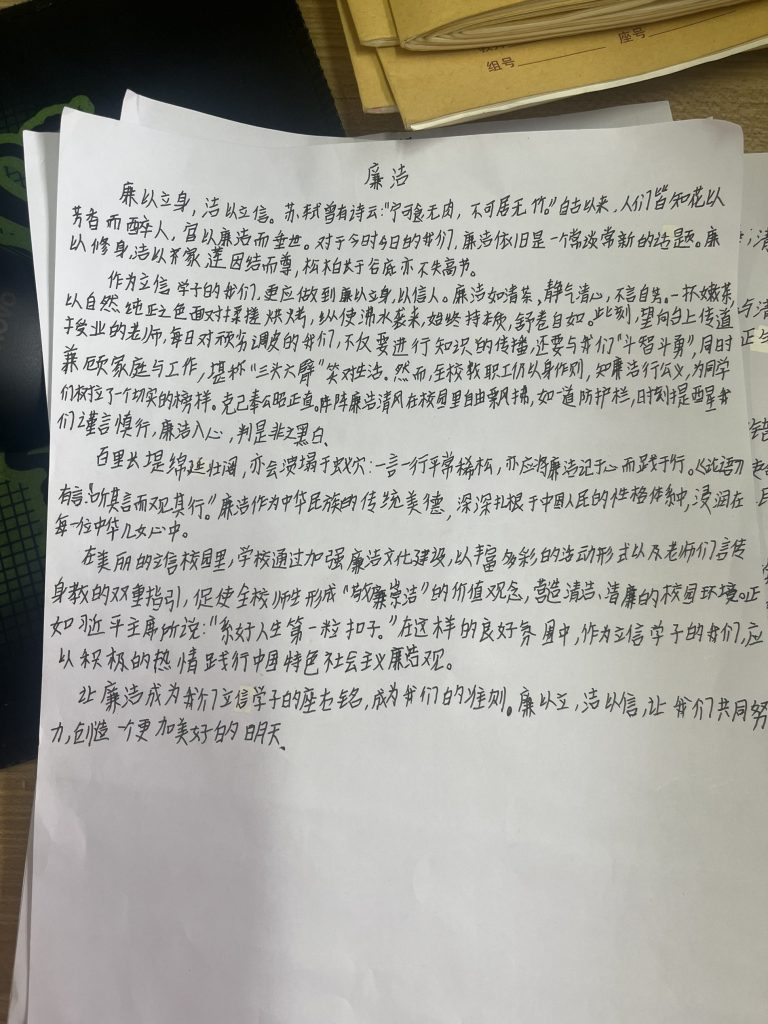 组号
座号
廉洁
廉以立身，洁以立信。苏轼曾有诗云："宁可食无肉，不可居无竹。"自古以来，人们皆知花以
芳香而醉人，官以廉洁而垂世。对于今时今日的我们，廉洁依旧是一个常谈常新的话题。廉
以修身，洁以齐家，莲因结而尊，松柏长于谷底亦不失高节。
作为立信学子的我们，更应做到廉以立身，以信人。廉洁如清茶，静气清心，不言自芳。一杯嫩茶，
以自然纯正之色面对揉搓烘烤，纵使沸水袭来，始终持本质，舒卷自如。此刻，望向台上传道
授业的老师，每日对顽劣调皮的我们，不仅要进行知识的传播，还要与我们"斗智斗勇"，同时
兼顾家庭与工作，堪称"三头六臂"笑对生活。然而，全校教职工仍以身作则，知廉洁行公义，为同学
们树立了一个切实的榜样。克己奉公昭正直。阵阵廉洁清风在校园里自由飘扬，如一道防护栏，时刻提醒我
们谨言慎行，廉洁入心，判是非之黑白、
百里长堤绵延壮阔，亦会溃塌于蚁穴：一言一行平常稀松，亦应将廉洁记于心而践于行。《论语》
有言："听其言而观其行。"廉洁作为中华民族的传统美德，深深扎根于中国人民的性格体系中，浸润在
每一位中华儿女心中。
在美丽的立信校园里，学校通过加强廉洁文化建设，以丰富多彩的活动形式以及老师们言传
身教的双重指引，促使全校师生形成"敬廉崇洁"的价值观念，营造清洁、清廉的校园环境。正
如习近平主席所说："系好人生第一粒扣子。"在这样的良好氛围中，作为立信学子的我们，应
以积极的热情践行中国特色社会主义廉洁观。
让廉洁成为我们立信学子的座右铭，成为我们的准则。廉以立，洁以信，让我们共同努
力，创造一个更加美好的明天、